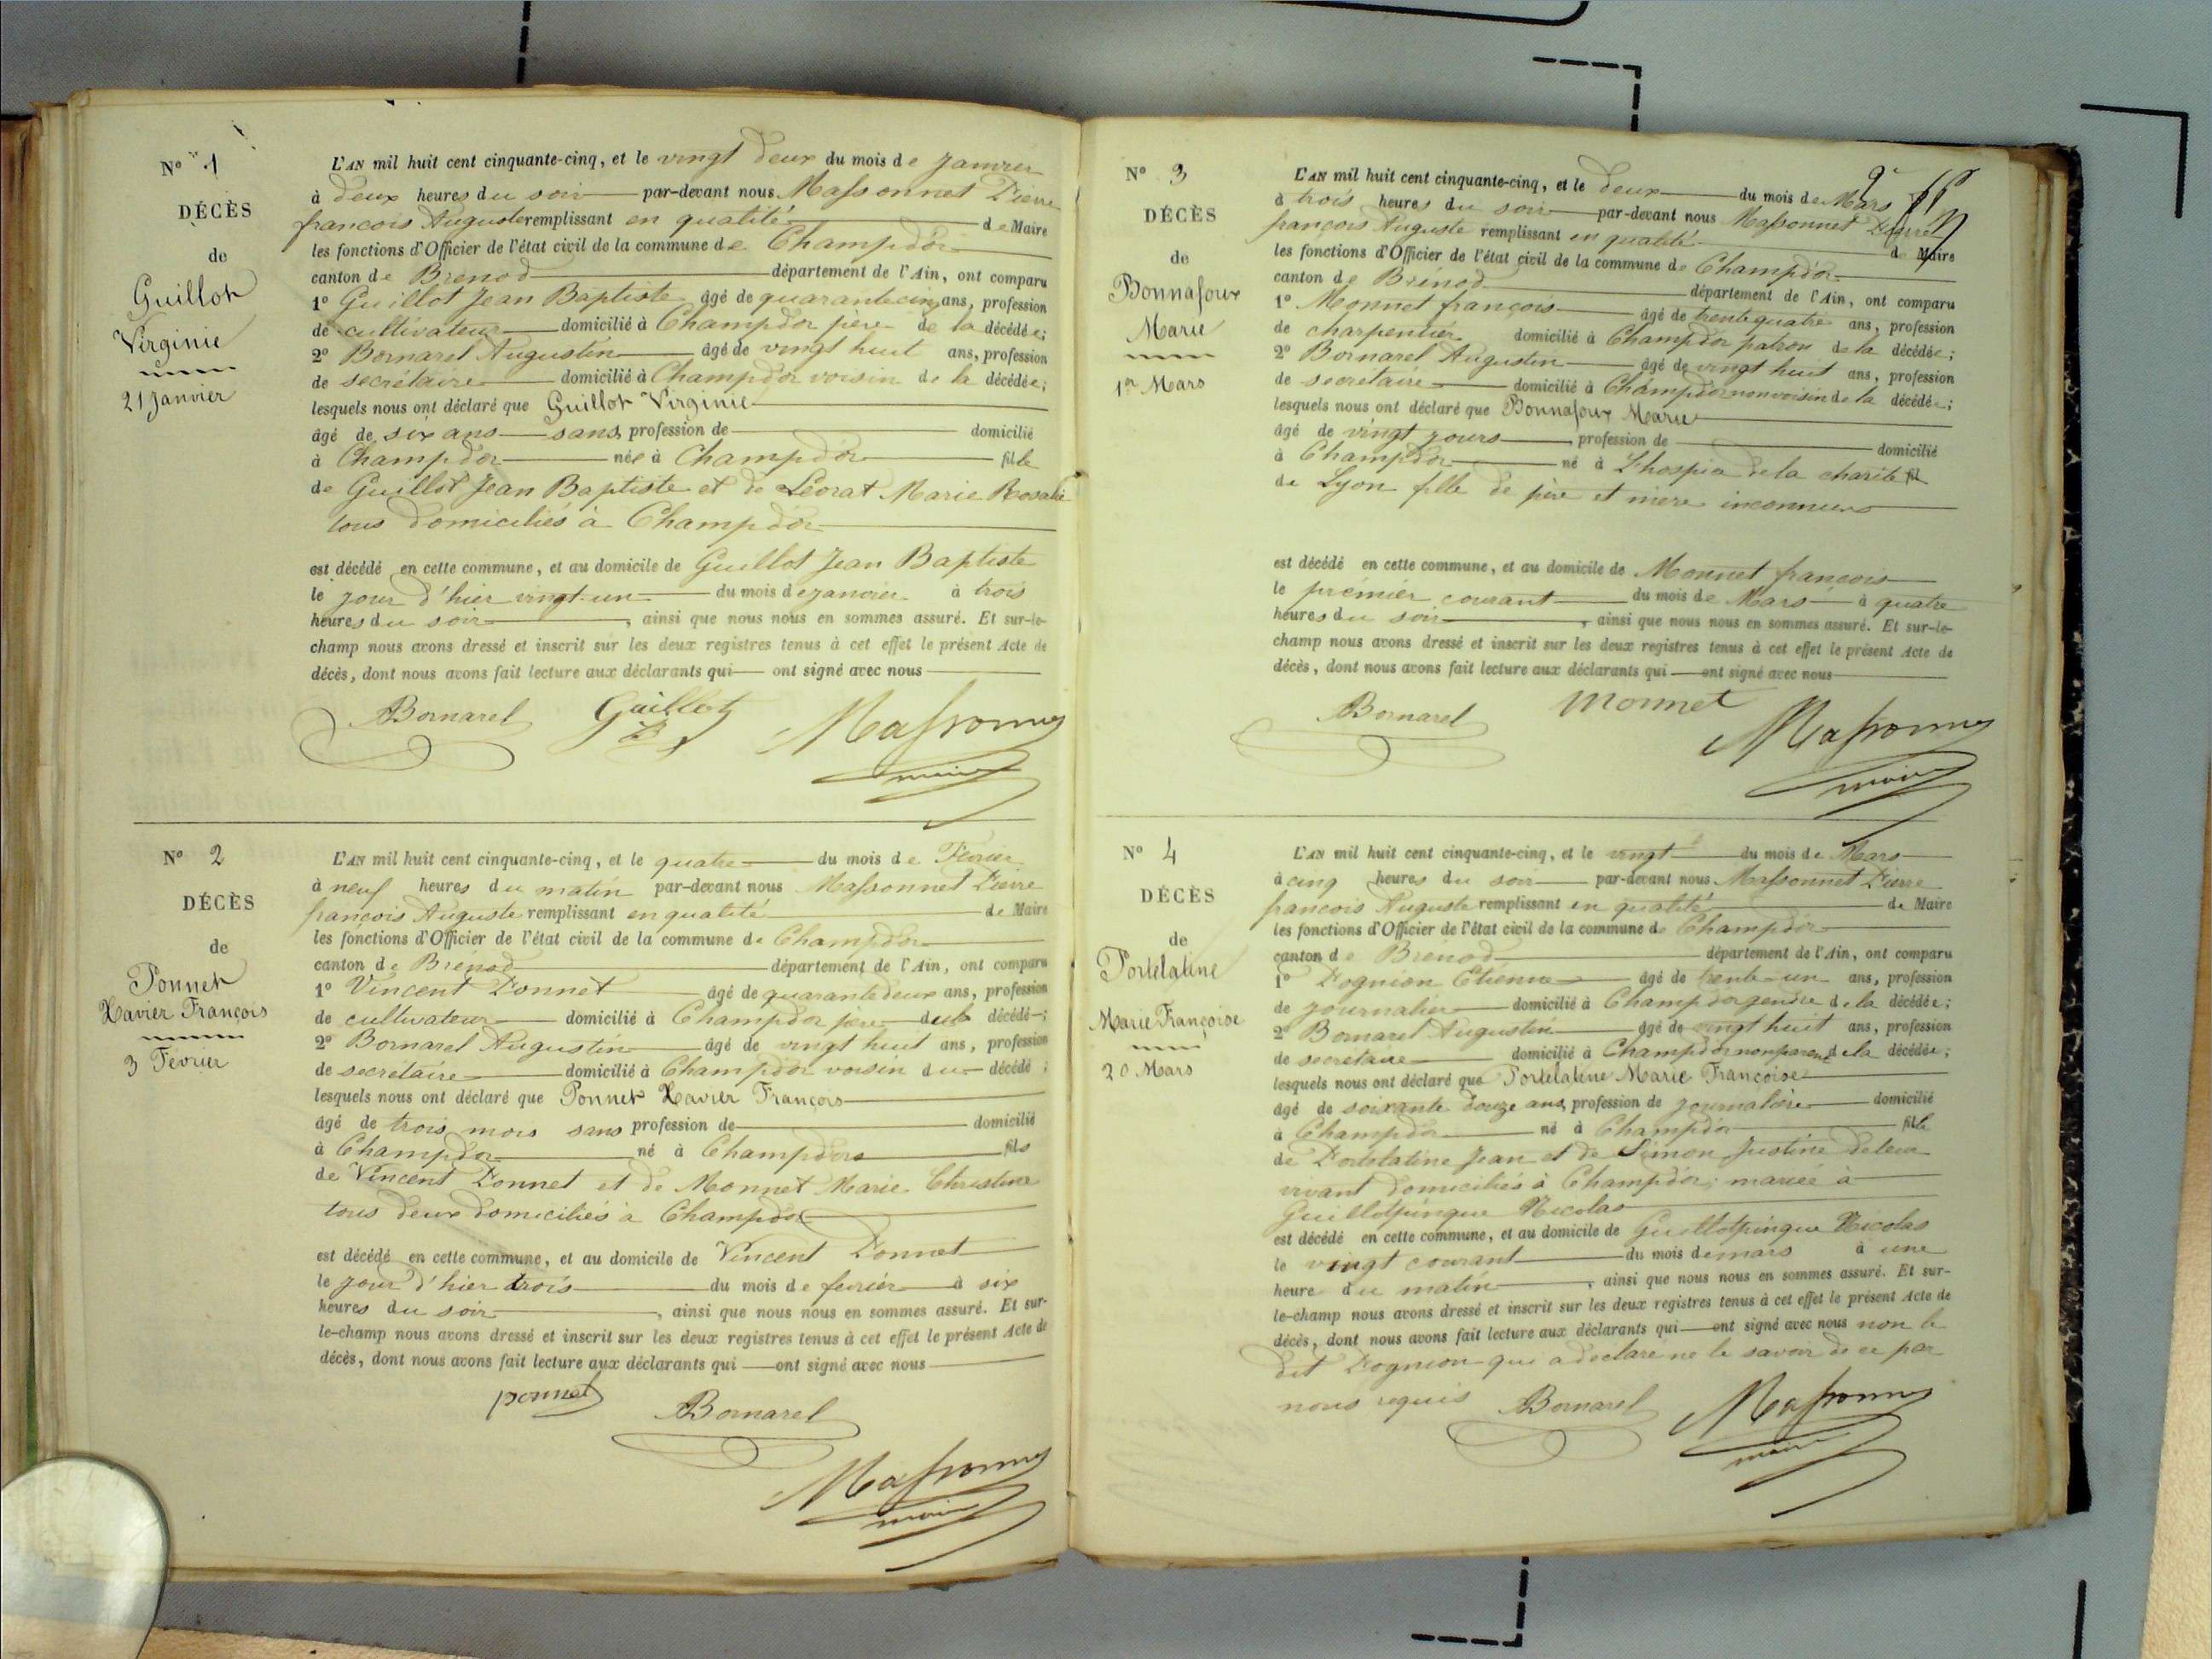 N° 1
DÉCÈS
de
Guillot
Virginie
21 Janvier
L'AN mil huit cent cinquante-cinq, et le vingt deux du mois de Janvier
à deux heures du soir par-devant nous Massonnet Pierre
françois Auguste remplissant en qualité de Maire
les fonctions d'Officier de l'état civil de la commune de Champdor
canton de Brenod département de l'Ain, ont comparu
1° Guillot Jean Baptiste âgé de quarante cinq ans, profession
de cultivateur domicilié à Champdor père de la décédée;
2° Bornarel Augustin âgé de vingt huit ans, profession
de secrétaire domicilié à Champdor voisin de la décédée;
lesquels nous ont déclaré que Guillot Virginie
âgé de six ans sans profession de domicilié
à Champdor née à Champdor fille
de Guillot Jean Baptiste et de Léorat Marie Rosalie
tous domiciliés à Champdor
est décédé en cette commune, et au domicile de Guillot Jean Baptiste
le jour d'hier vingt-un du mois de janvier à trois
heures du soir, ainsi que nous nous en sommes assuré. Et sur-le-
champ nous avons dressé et inscrit sur les deux registres tenus à cet effet le présent Acte de
décès, dont nous avons fait lecture aux déclarants qui ont signé avec nous
Bornarel Guillot Massonnet
maire
N° 2
DÉCÈS
de
Ponnet
Xavier François
3 Février
L'AN mil huit cent cinquante-cinq, et le quatre du mois de Février
à neuf heures du matin par-devant nous Massonnet Pierre
françois Auguste remplissant en qualité de Maire
les fonctions d'Officier de l'état civil de la commune de Champdor
canton de Brénod département de l'Ain, ont comparu
1° Vincent Ponnet âgé de quarante deux ans, profession
de cultivateur domicilié à Champdor père du décédé;
2° Bornarel Augustin âgé de vingt huit ans, profession
de secrétaire domicilié à Champdor voisin du décédé;
lesquels nous ont déclaré que Ponnet Xavier François
âgé de trois mois sans profession de domicilié
à Champdor né à Champdor fils
de Vincent Ponnet et de Monnet Marie Christine
tous deux domiciliés à Champdor
est décédé en cette commune, et au domicile de Vincent Ponnet
le jour d'hier trois du mois de fevrier à six
heures du soir, ainsi que nous nous en sommes assuré. Et sur-
le-champ nous avons dressé et inscrit sur les deux registres tenus à cet effet le présent Acte de
décès, dont nous avons fait lecture aux déclarants qui ont signé avec nous
ponnet Bornarel
Massonnet
maire
N° 3
DÉCÈS
de
Bonnafoux
Marie
1er Mars
L'AN mil huit cent cinquante-cinq, et le deux du mois de Mars
à trois heures du soir par-devant nous Massonnet Pierre
françois Auguste remplissant en qualité de Maire
les fonctions d'Officier de l'état civil de la commune de Champdor
canton de Brénod département de l'Ain, ont comparu
1° Monnet françois âgé de trente quatre ans, profession
de charpentier domicilié à Champdor patron de la décédée;
2° Bornarel Augustin âgé de vingt huit ans, profession
de secrétaire domicilié à Champdor non voisin de la décédée;
lesquels nous ont déclaré que Bonnafoux Marie
âgé de vingt jours profession de domicilié
à Champdor né à L'hospia de la charité fil
de Lyon fille de père et mère inconnues
est décédé en cette commune, et au domicile de Monnet françois
le prémier courant du mois de Mars à quatre
heures du soir, ainsi que nous nous en sommes assuré. Et sur-le-
champ nous avons dressé et inscrit sur les deux registres tenus à cet effet le présent Acte de
décès, dont nous avons fait lecture aux déclarants qui ont signé avec nous
Bornarel Monnet Massonnet
maire
N° 4
DÉCÈS
de
Portelatine
Marie Françoise
20 Mars
L'AN mil huit cent cinquante-cinq, et le vingt du mois de Mars
à cinq heures du soir par-devant nous Massonnet Pierre
françois Auguste remplissant en qualité de Maire
les fonctions d'Officier de l'état civil de la commune de Champdor
canton de Brénod département de l'Ain, ont comparu
1° Pognion Etienne âgé de trente-un ans, profession
de journalier domicilié à Champdor gendre de la décédée;
2° Bornarel Augustin âgé de vingt huit ans, profession
de secrétaire domicilié à Champdor non parent de la décédée;
lesquels nous ont déclaré que Portelatine Marie Françoise
âgé de soixante douze ans, profession de journalière domicilié
à Champdor né à Champdor fille
de Portelatine Jean et de Simon Justine de leur
vivant domiciliés à Champdor; mariée à
Guillotpingue Nicolas
est décédé en cette commune, et au domicile de Guillotpingue Nicolas
le vingt courant du mois de mars à une
heure du matin, ainsi que nous nous en sommes assuré. Et sur-
le-champ nous avons dressé et inscrit sur les deux registres tenus à cet effet le présent Acte de
décès, dont nous avons fait lecture aux déclarants qui ont signé avec nous non le
dit Pognion qui a déclaré ne le savoir de ce par
nous requis Bornarel Massonnet
maire